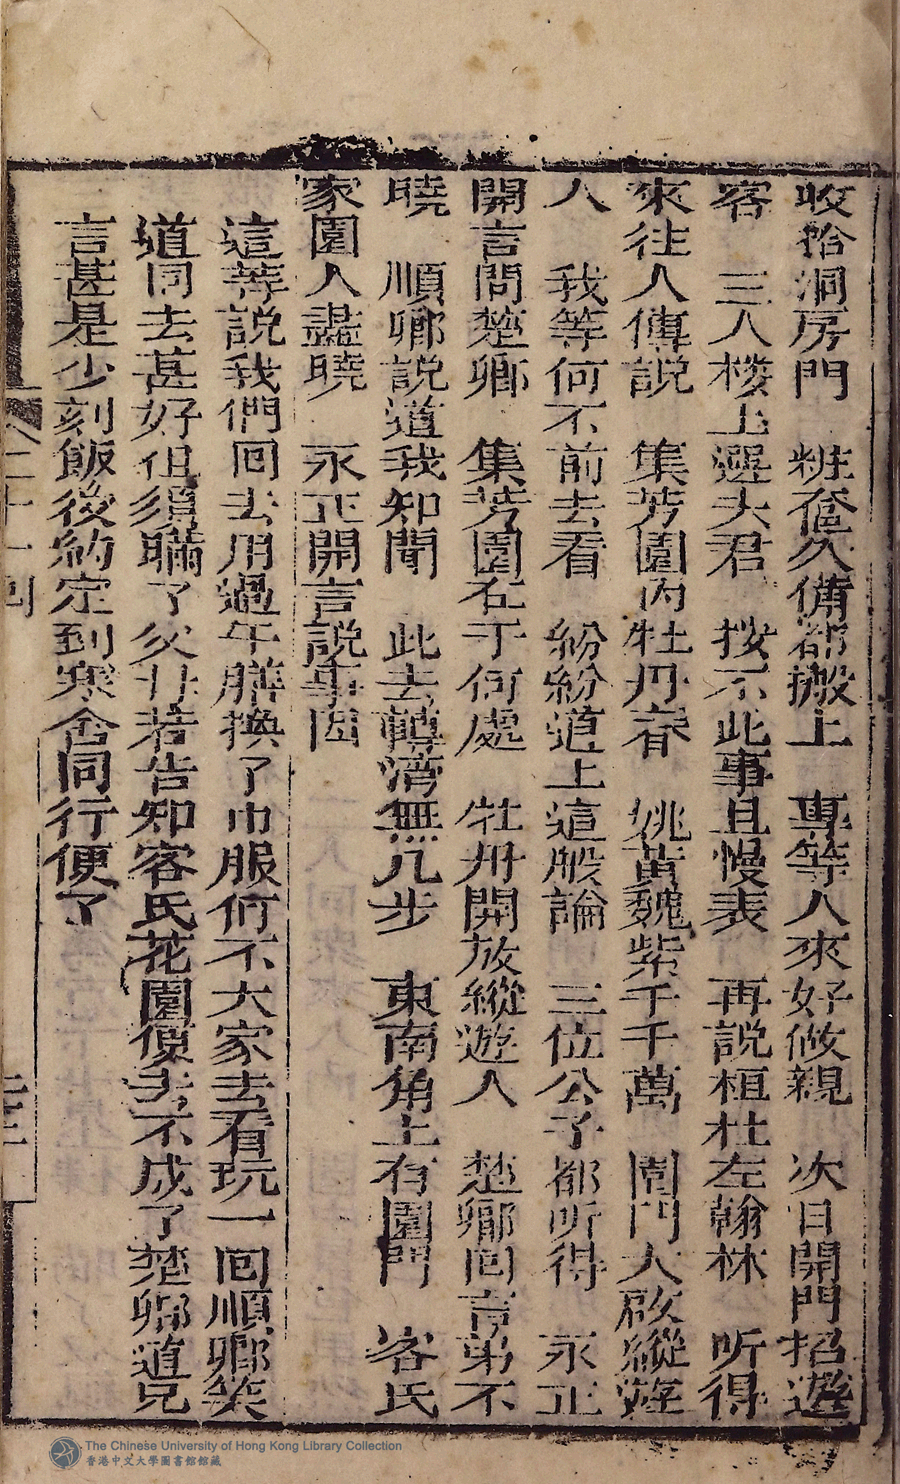 收拾洞房門　粧奩久備都搬上　專等人來好做親　次日開門招遊
客　三人樓上選夫君　按不此事且慢表　再説桓杜左翰林　听得
來往人傳説　集芳園内牡丹春　姚黃魏紫千千萬　園門大啟縱遊
人　我等何不前去看　紛紛道上這般論　三位公子都听得　永正
開言問楚卿　集芳園在于何處　牡丹開放縱遊人　楚卿回言弟不
曉　順卿説道我知聞　此去轉湾無几步　東南角上有園門　客氏
家園人盡曉　永正開言説事因
這等説我們回去用過午膳換了巾服何不大家去看玩一回順卿笑
道同去甚好但須瞞了父廿若告知客氏花園便去不成了楚卿道兄
言甚是少刻飯後約定到寒舍同行便了
二十一回
The Chinese University of Hong Kong Library Collection
香港中文大學圖書館館藏